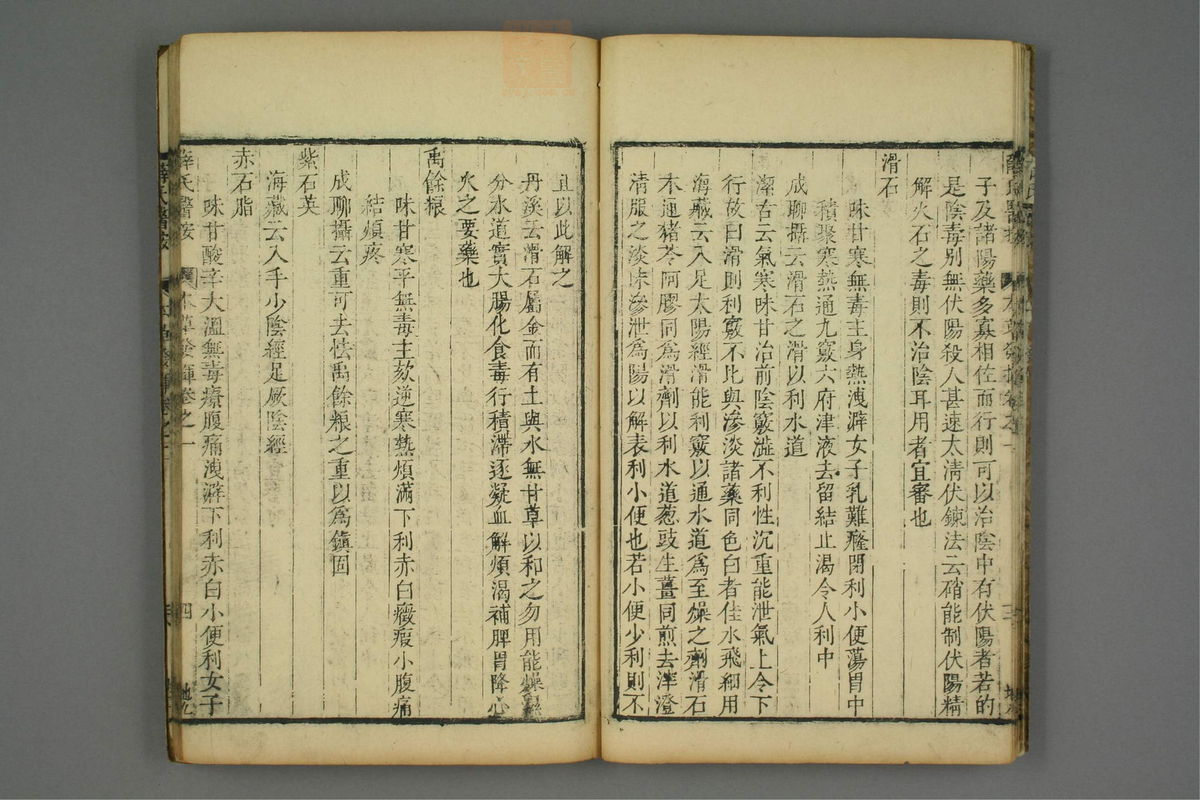 子及諸陽藥多寡相佐而行則可以治陰中有伏陽者若的
是陰毒別無伏陽殺人甚速太清伏鍊法云硝能制伏陽精
解火石之毒則不治陰耳用者宜審也
滑石
味甘寒無毒主身熱洩澼女子乳難癃閉利小便蕩胃中
積聚寒熱通九竅六府津液去留結止渴令人利中
成聊攝云滑石之滑以利水道
潔古云氣寒味甘治前陰竅澁不利性沉重能泄氣上令下
行故曰滑則利竅不比與滲淡諸藥同色白者佳水飛細用
海藏云入足太陽經滑能利竅以通水道爲至燥之劑滑石
木通猪苓阿膠同爲滑劑以利水道葱豉生薑同煎去滓澄
清服之淡味滲泄爲陽以解表利小便也若小便少利則不
且以此解之
丹溪云滑石屬金而有土與水無甘草以和之勿用能燥濕
分水道實大腸化食毒行積滯逐凝血解煩渴補脾胃降心
火之要藥也
禹餘糧
味甘寒平無毒主欬逆寒熱煩滿下利赤白癥瘕小腹痛
結煩疼
成聊攝云重可去怯禹餘粮之重以爲鎮固
紫石英
海藏云入手少陰經足厥陰經
赤石脂
味甘酸辛大溫無毒療腹痛洩澼下利赤白小便利女子
薛氏醫按 本草發揮卷之一 四